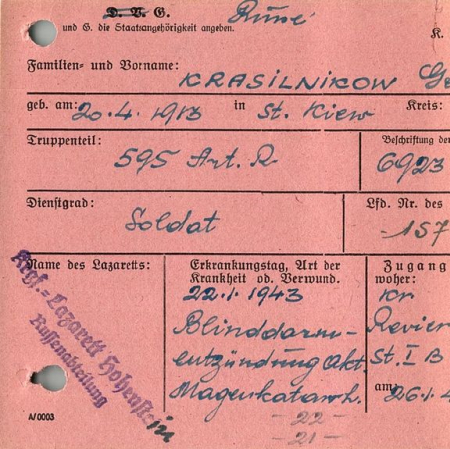 D. V. G. Russe
und G. die Staatsangehörigkeit angeben. K.
Familien- und Vorname:
KRASILNIKOW Ge
geb. am: 20.4.1913 in St. Kiew Kreis:
Truppenteil: Beschriftung der
595 Art. R 6923
Dienstgrad: Lfd. Nr. des
Soldat -157
Name des Lazaretts:
Krgf.-Lazarett Hohenstein
Russenabteilung
Erkrankungstag, Art der
Krankheit od. Verwund.
22.1.1943
Blinddarm-
entzündung Akt.
Magenkatarrh.
- 22 -
- 21 -
Zugang
woher:
Kr
Revier
St. I B
am:
26.1.4
A/0003